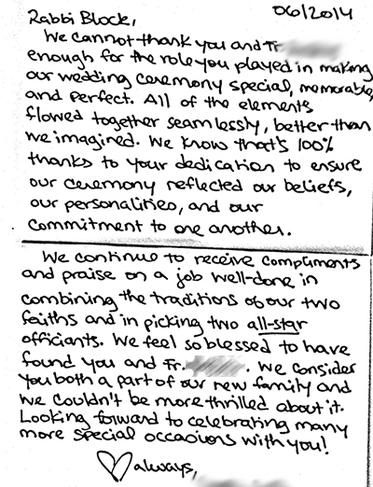 06/2014
Rabbi Block,
We cannot thank you and Fr.
enough for the role you played in making
our wedding ceremony special, memorable,
and perfect. All of the elements
flowed together seamlessly, better than
we imagined. We know that's 100%
thanks to your dedication to ensure
our ceremony reflected our beliefs,
our personalities, and our
commitment to one another.
We continue to receive compliments
and praise on a job well-done in
combining the traditions of our two
faiths and in picking two all-star
officiants. We feel so blessed to have
found you and Fr. . We consider
you both a part of our new family and
we couldn't be more thrilled about it.
Looking forward to celebrating many
more special occasions with you!
♡ always,